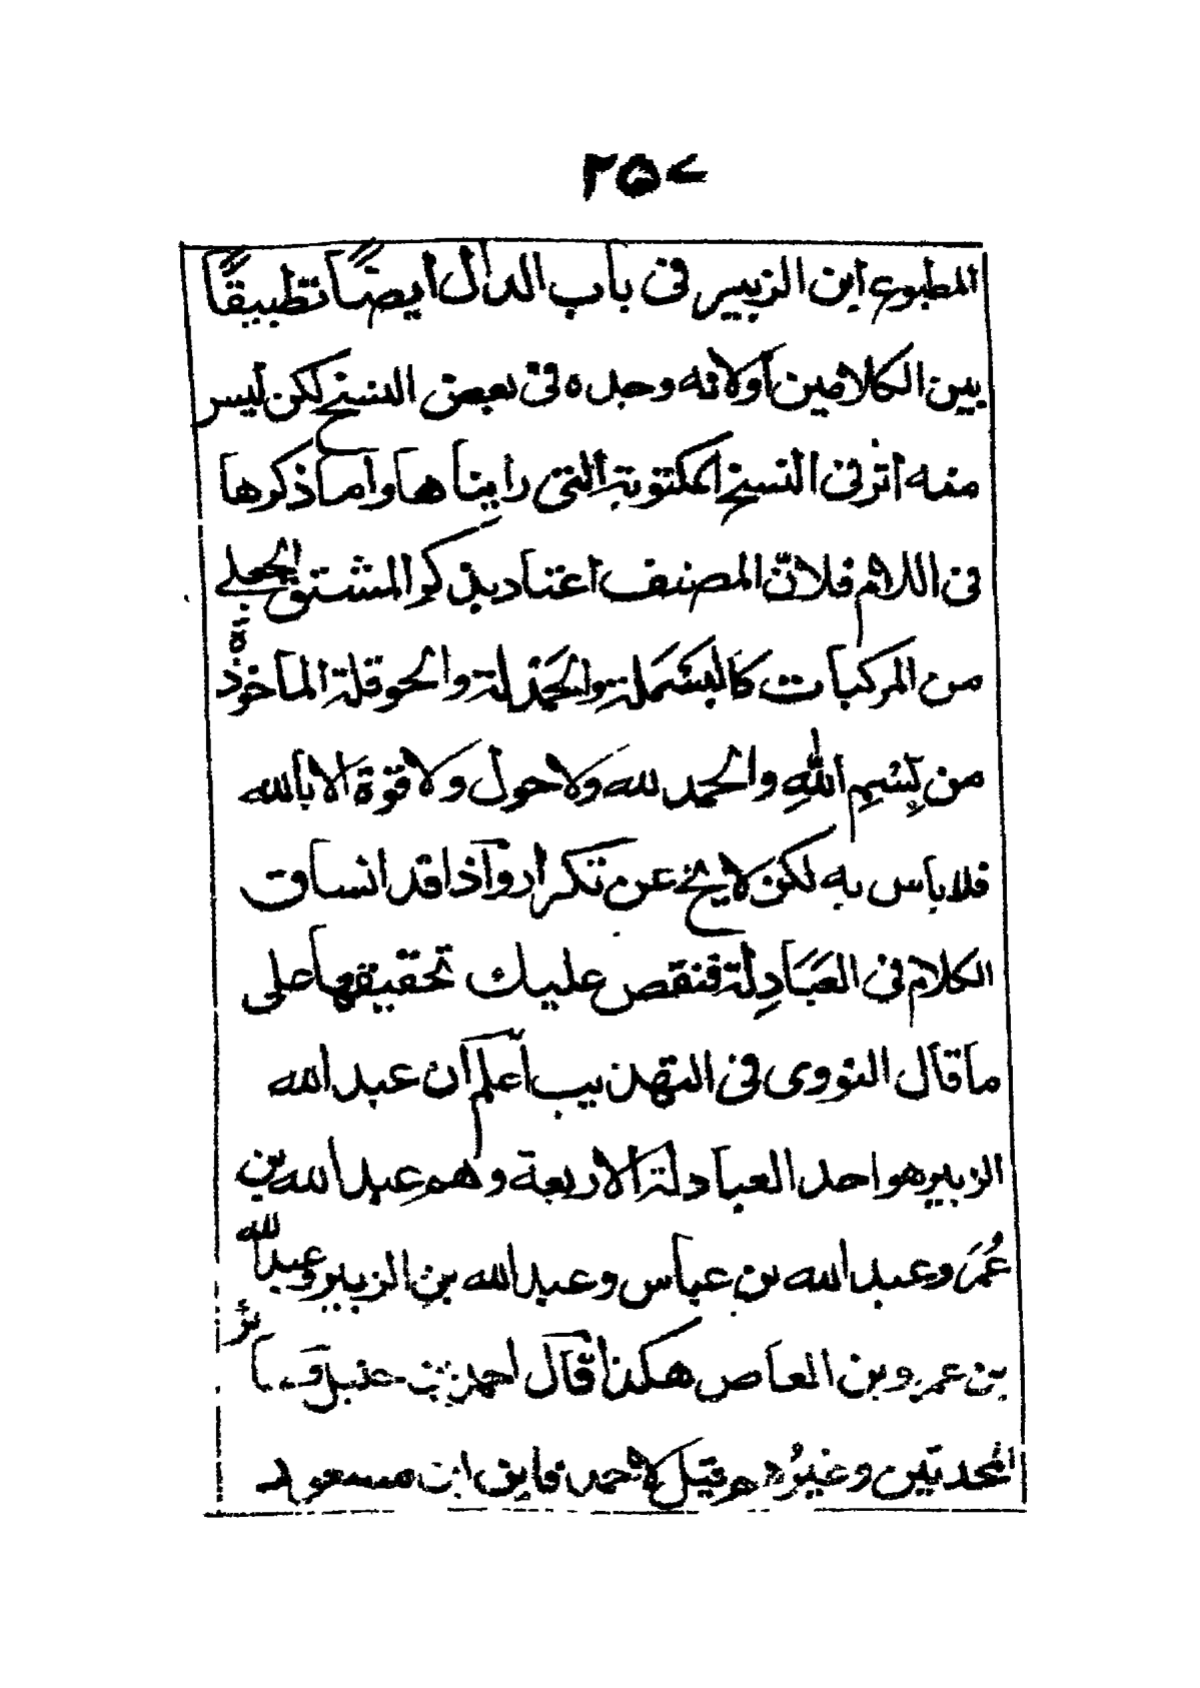 ٢٥٧
المطبوع ابن الزبير فى باب الدال أيضًا تطبيقًا
بين الكلامين أولانه وجده فى بعض النسخ لكن ليس
منه اثر فى النسخ المكتوبة التى راينا ها واما ذكرها
فى اللام فلانّ المصنف اعتاد بذكر المشتق الجعلى
من المركبات كالبَسْمَلة والحَمْدَلة والحوقلة الماخوذ
من بِسْمِ اللّٰهِ والحمد لله ولا حول ولا قوة الا بالله
فلا باس به لكن لا يخ عن تكرار وآذا قد انساق
الكلام فى العَبَادِلة فنقص عليك تحقيقها على
ما قال النووى فى التهذيب أعلم أن عبد الله
الزبير هو احد العبادلة الاربعة وهم عبد الله بن
عُمَرَ وعبد الله بن عباس وعبد الله بن الزبير وعبد الله
بن عمرو بن العاص هكذا قآل احمد بن حنبل و
المحدثين وغيرُهم وقيل لاحمد فابن ابن مسعود